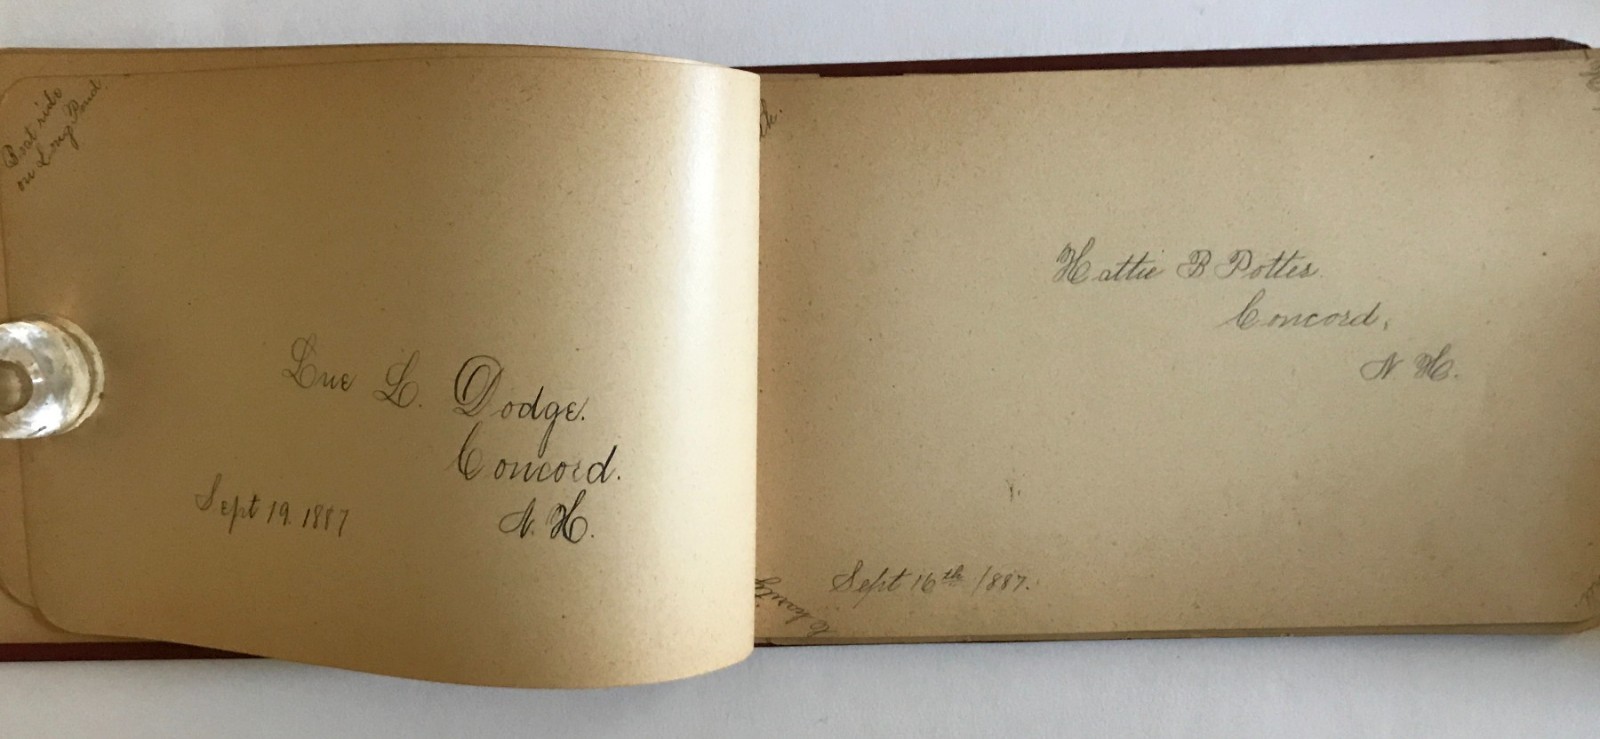 Boat ride
on Long Pond
Lue L. Dodge.
Concord.
N. H.
Sept 19. 1887
th.
Hattie B Potter
Concord,
N H.
Sept 16th 1887.